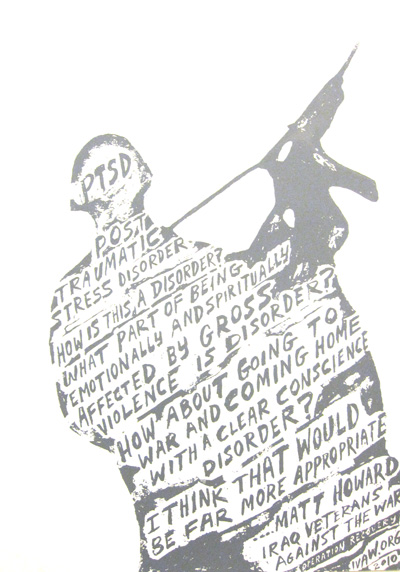 PTSD
POST
TRAUMATIC
STRESS DISORDER
HOW IS THIS A DISORDER?
WHAT PART OF BEING
EMOTIONALLY AND SPIRITUALLY
AFFECTED BY GROSS
VIOLENCE IS DISORDER?
HOW ABOUT GOING TO
WAR AND COMING HOME
WITH A CLEAR CONSCIENCE
DISORDER?
I THINK THAT WOULD
BE FAR MORE APPROPRIATE
...MATT HOWARD
IRAQ VETERANS
AGAINST THE WAR
OPERATION RECOVERY
IVAW.ORG
2010